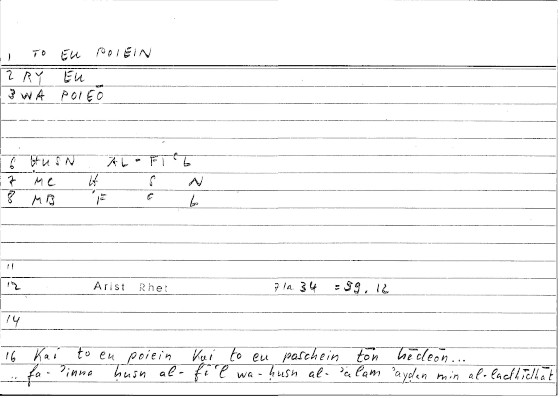 1 TO EU POIEIN
2 RY EU
3 WA POIEŌ
6 ḤUSN AL-FIʿL
7 MC Ḥ S N
8 MB F ʿ L
11
12 Arist Rhet 71a 34 = 59.12
14
16 Kai to eu poiein kai to eu paschein tōn hēdeōn...
.. fa-ʾinna ḥusn al-fiʿl wa-ḥusn al-ʾalam ʾayḍan min al-ladhīdhāt